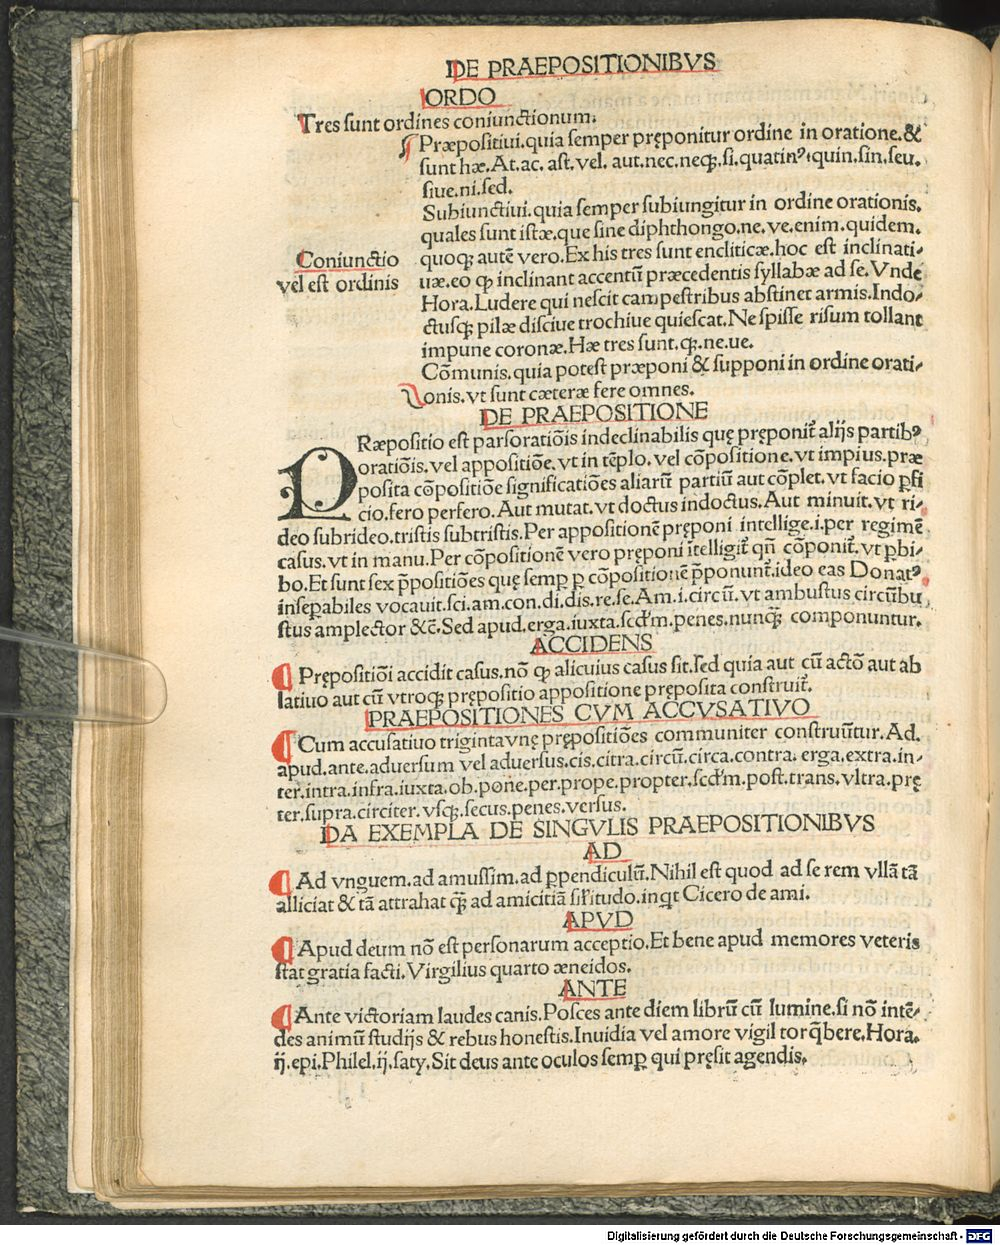 DE PRAEPOSITIONIBVS
ORDO
Tres sunt ordines coniunctionum.
Præpositiui.quia semper pręponitur ordine in oratione.&
sunt hæ.At.ac.ast.vel.aut.nec.neqꝫ.si.quatinꝰ.quin.sin.seu.
siue.ni.sed.
Subiunctiui.quia semper subiungitur in ordine orationis.
quales sunt istæ.que sine diphthongo.ne.ve.enim.quidem.
Coniunctio
vel est ordinis
quoqꝫ autē vero.Ex his tres sunt encliticæ.hoc est inclinati-
uæ.eo ꝙ inclinant accentū præcedentis syllabæ ad se.Vnde
Hora.Ludere qui nescit campestribus abstinet armis.Indo-
ctusqꝫ pilæ disciue trochiue quiescat.Ne spisse risum tollant
impune coronæ.Hæ tres sunt.qꝫ.ne.ue.
Cōmunis.quia potest præponi & supponi in ordine orati-
onis.vt sunt cæteræ fere omnes.
DE PRAEPOSITIONE
PRæpositio est parsoratiōis indeclinabilis quę pręponit̄ alijs partibꝰ
oratiōis.vel appositiōe.vt in tēplo.vel cōpositione.vt impius.præ
posita cōpositiōe significatiōes aliarū partiū aut cōplet.vt facio ꝑfi
cio.fero perfero.Aut mutat.vt doctus indoctus.Aut minuit.vt ri-
deo subrideo.tristis subtristis.Per appositionē pręponi intellige.i.per regimē
casus.vt in manu.Per cōpositionē vero pręponi ītelligit̄ qn̄ cōponit̄.vt ꝓhi-
bo.Et sunt sex p̄positiōes quę semꝑ ꝑ cōpositionē p̄ponunt̄.ideo eas Donatꝰ
insepabiles vocauit.sci.am.con.di.dis.re.se.Am.i.circū.vt ambustus circūbu
stus amplector &c̄.Sed apud.erga.iuxta.scd̄m.penes.nunqꝫ componuntur.
ACCIDENS
Prępositiōi accidit casus.nō ꝙ alicuius casus sit.sed quia aut cū actō aut ab
latiuo aut cū vtroqꝫ prępositio appositione pręposita construit̄.
PRAEPOSITIONES CVM ACCVSATIVO
Cum accusatiuo trigintavnę prępositiōes communiter construūtur.Ad.
apud.ante.aduersum vel aduersus.cis.citra.circū.circa.contra.erga.extra.in-
ter.intra.infra.iuxta.ob.pone.per.prope.propter.scd̄m.post.trans.vltra.prę
ter.supra.circiter.vsqꝫ.secus.penes.versus.
DA EXEMPLA DE SINGVLIS PRAEPOSITIONIBVS
AD
Ad vnguem.ad amussim.ad ꝑpendiculū.Nihil est quod ad se rem vllā tā
alliciat & tā attrahat qꝫ ad amicitiā sil̄itudo.inqt Cicero de ami.
APVD
Apud deum nō est personarum acceptio.Et bene apud memores veteris
stat gratia facti.Virgilius quarto æneidos.
ANTE
Ante victoriam laudes canis.Posces ante diem librū cū lumine.si nō intē-
des animū studijs & rebus honestis.Inuidia vel amore vigil torq̄bere.Hora.
ij.epi.Philel.ij.saty.Sit deus ante oculos semꝑ qui pręsit agendis.
Digitalisierung gefördert durch die Deutsche Forschungsgemeinschaft - DFG